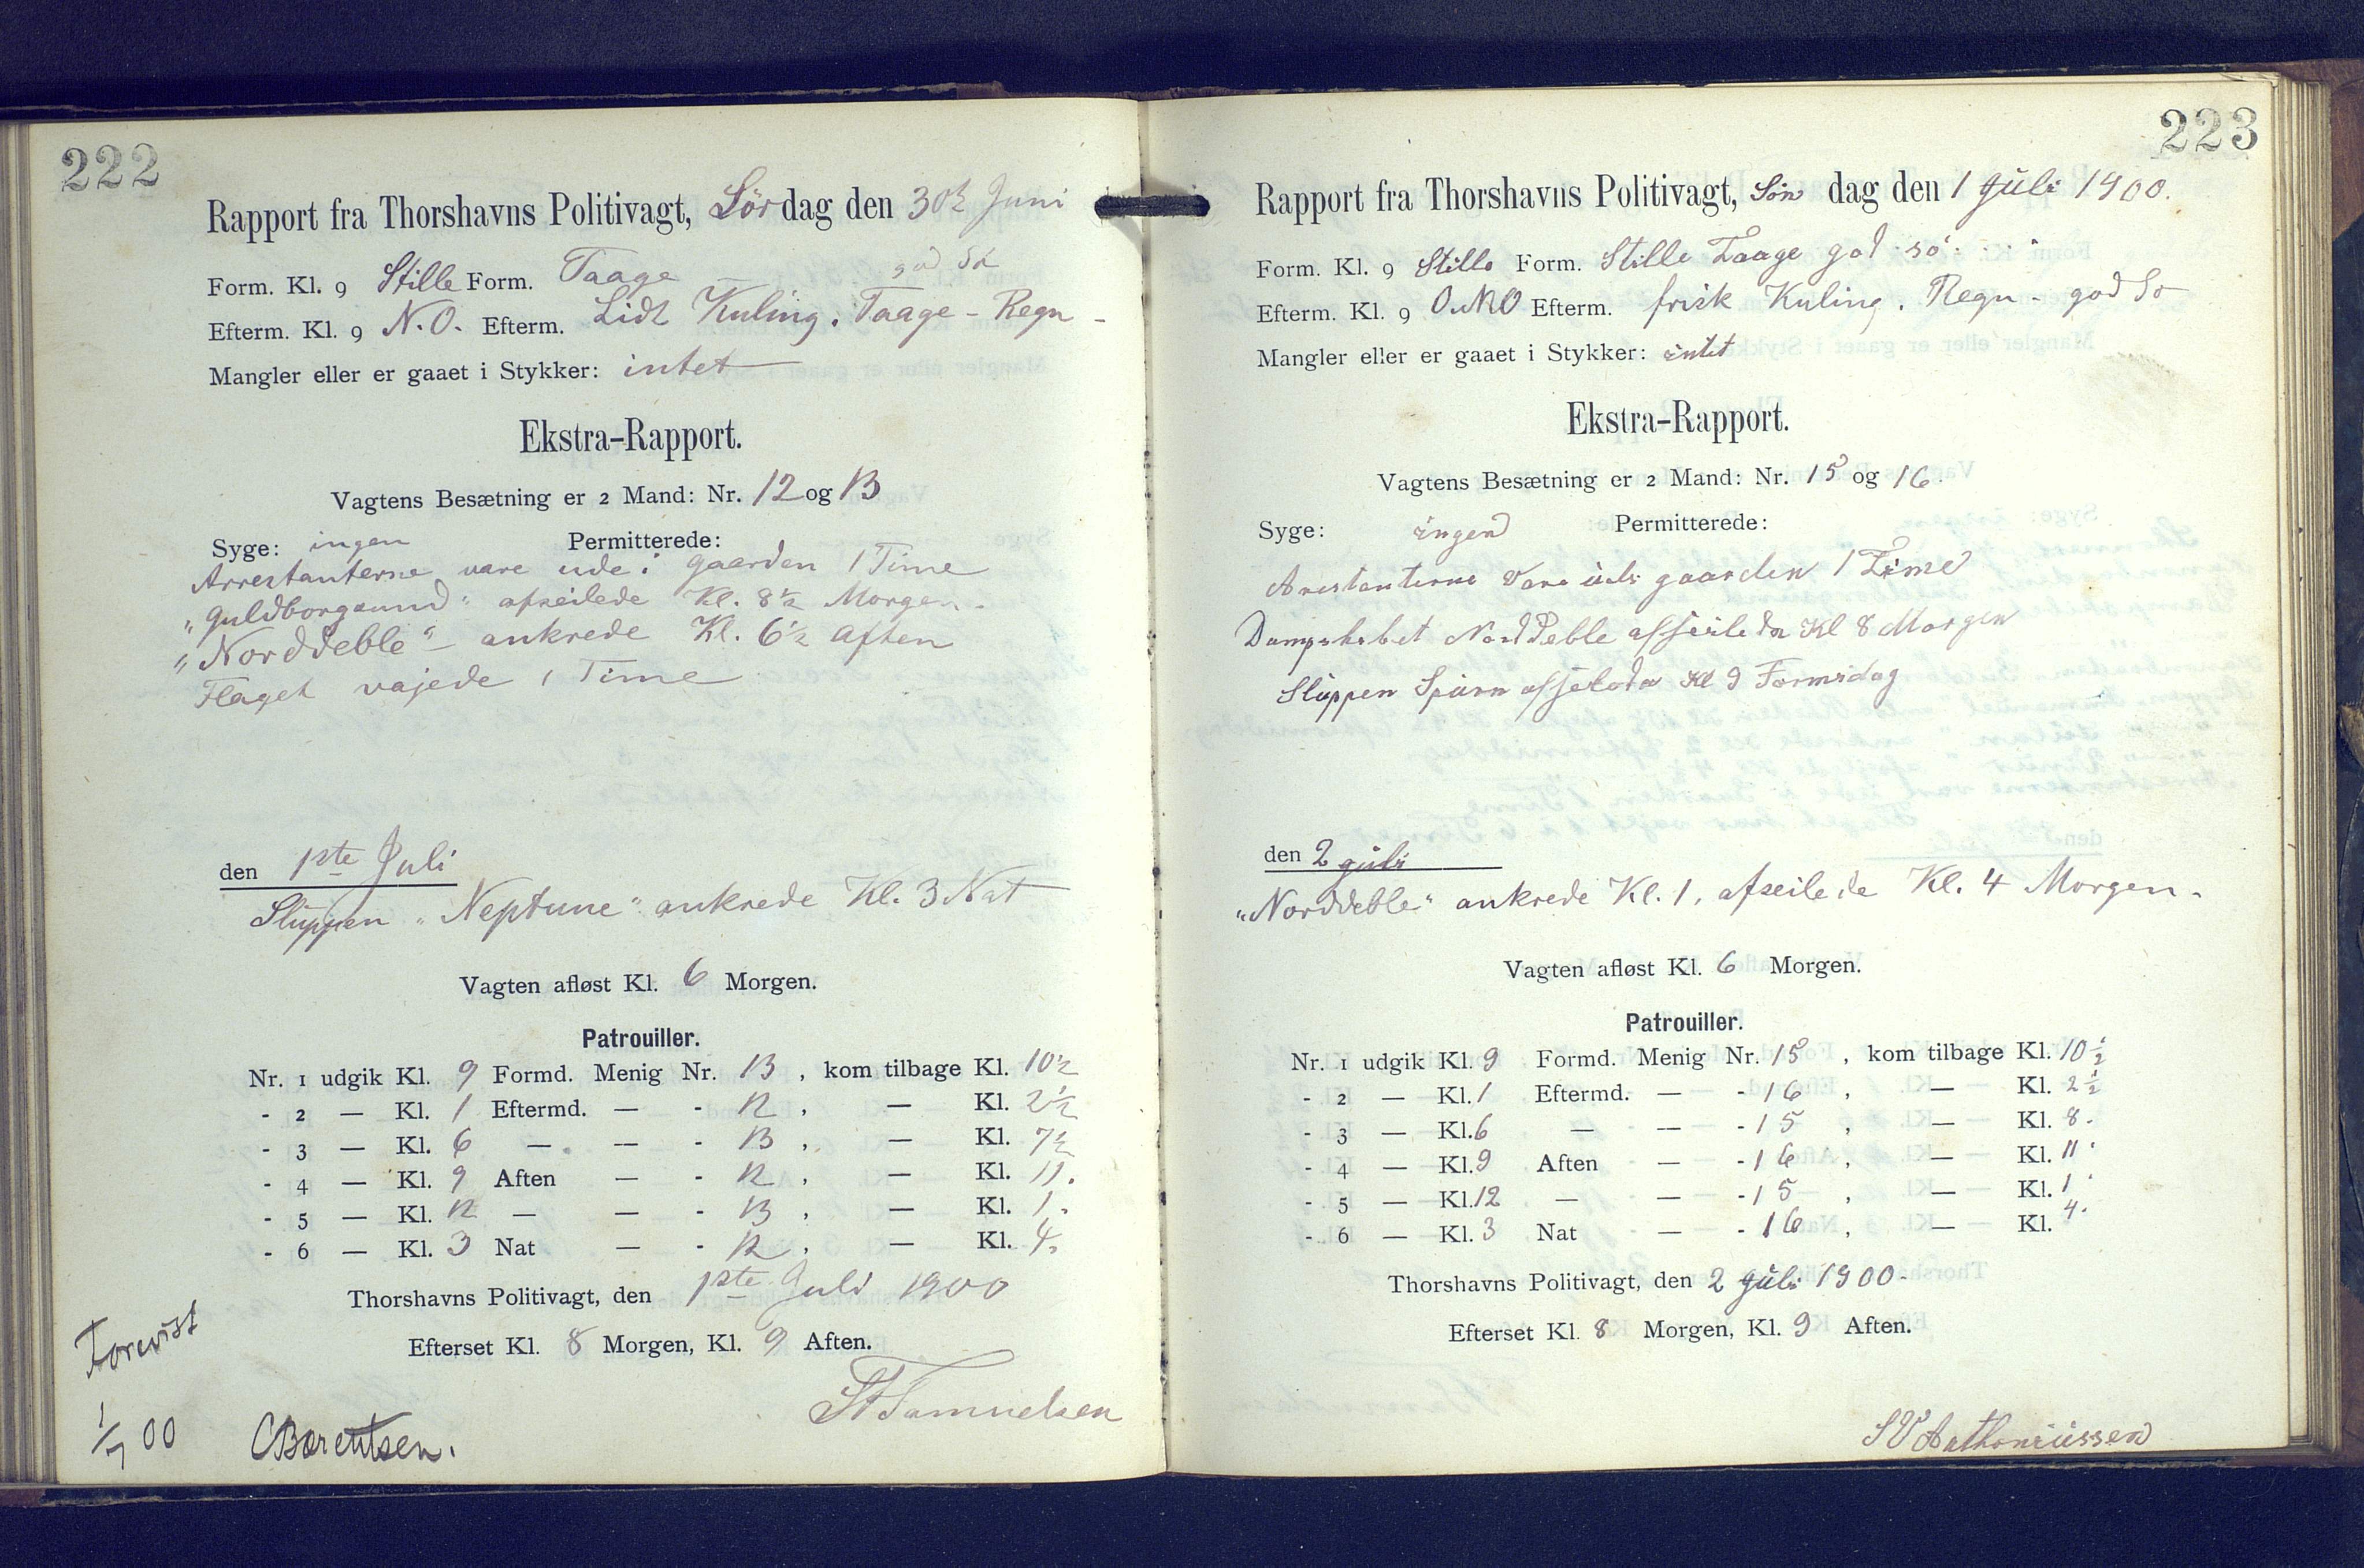 222
Rapport fra Thorshavns Politivagt, Lördag den 30te Juni
Form. Kl. 9 Stille Form. Taage god Sö
Efterm. Kl. 9 N.O. Efterm. Lidt Kuling. Taage - Regn -
Mangler eller er gaaet i Stykker: intet
Ekstra-Rapport.
Vagtens Besætning er 2 Mand: Nr. 12 og 13
Syge: ingen Permitterede:
Arrestanterne vare ude i gaarden 1 Time
„Guldborgsund“ afseilede Kl. 8½ Morgen.
„Norddeble“ - ankrede Kl. 6½ Aften
Flaget vajede 1 Time
den 1ste Juli
Sluppen „Neptune“ ankrede Kl. 3 Nat
Vagten afløst Kl. 6 Morgen.
Patrouiller.
Nr. 1 udgik Kl. 9 Formd. Menig Nr. 13, kom tilbage Kl. 10½
- 2 — Kl. 1 Eftermd. — - 12, — Kl. 2½
- 3 — Kl. 6 — — - 13, — Kl. 7½
- 4 — Kl. 9 Aften — - 12, — Kl. 11.
- 5 — Kl. 12 — — - 13, — Kl. 1.
- 6 — Kl. 3 Nat — - 12, — Kl. 4.
Thorshavns Politivagt, den 1ste Juli 1900
Efterset Kl. 8 Morgen, Kl. 9 Aften.
Samuelsen
Forevist
1/7 00 CBærentsen.
223
Rapport fra Thorshavns Politivagt, Søn dag den 1 Juli 1900.
Form. Kl. 9 Stille Form. Stille Taage god sö.
Efterm. Kl. 9 O.NO Efterm. frisk Kuling. Regn - god Sö
Mangler eller er gaaet i Stykker: intet
Ekstra-Rapport.
Vagtens Besætning er 2 Mand: Nr. 15 og 16.
Syge: ingen Permitterede:
Arestanterne Vare ude gaarden 1 Time
Dampskibet Norddeble afseilede Kl 8 Morgen
Sluppen Spurn afseilede Kl 9 Formidag
den 2 Juli
„Norddeble“ ankrede Kl. 1, afseilede Kl. 4 Morgen.
Vagten afløst Kl. 6 Morgen.
Patrouiller.
Nr. 1 udgik Kl. 9 Formd. Menig Nr. 15, kom tilbage Kl. 10½
- 2 — Kl. 1 Eftermd. — - 16, — Kl. 2½
- 3 — Kl. 6 — — - 15, — Kl. 8.
- 4 — Kl. 9 Aften — - 16, — Kl. 11.
- 5 — Kl. 12 — — - 15, — Kl. 1.
- 6 — Kl. 3 Nat — - 16, — Kl. 4.
Thorshavns Politivagt, den 2 Juli 1900.
Efterset Kl. 8 Morgen, Kl. 9 Aften.
Anthoniussen